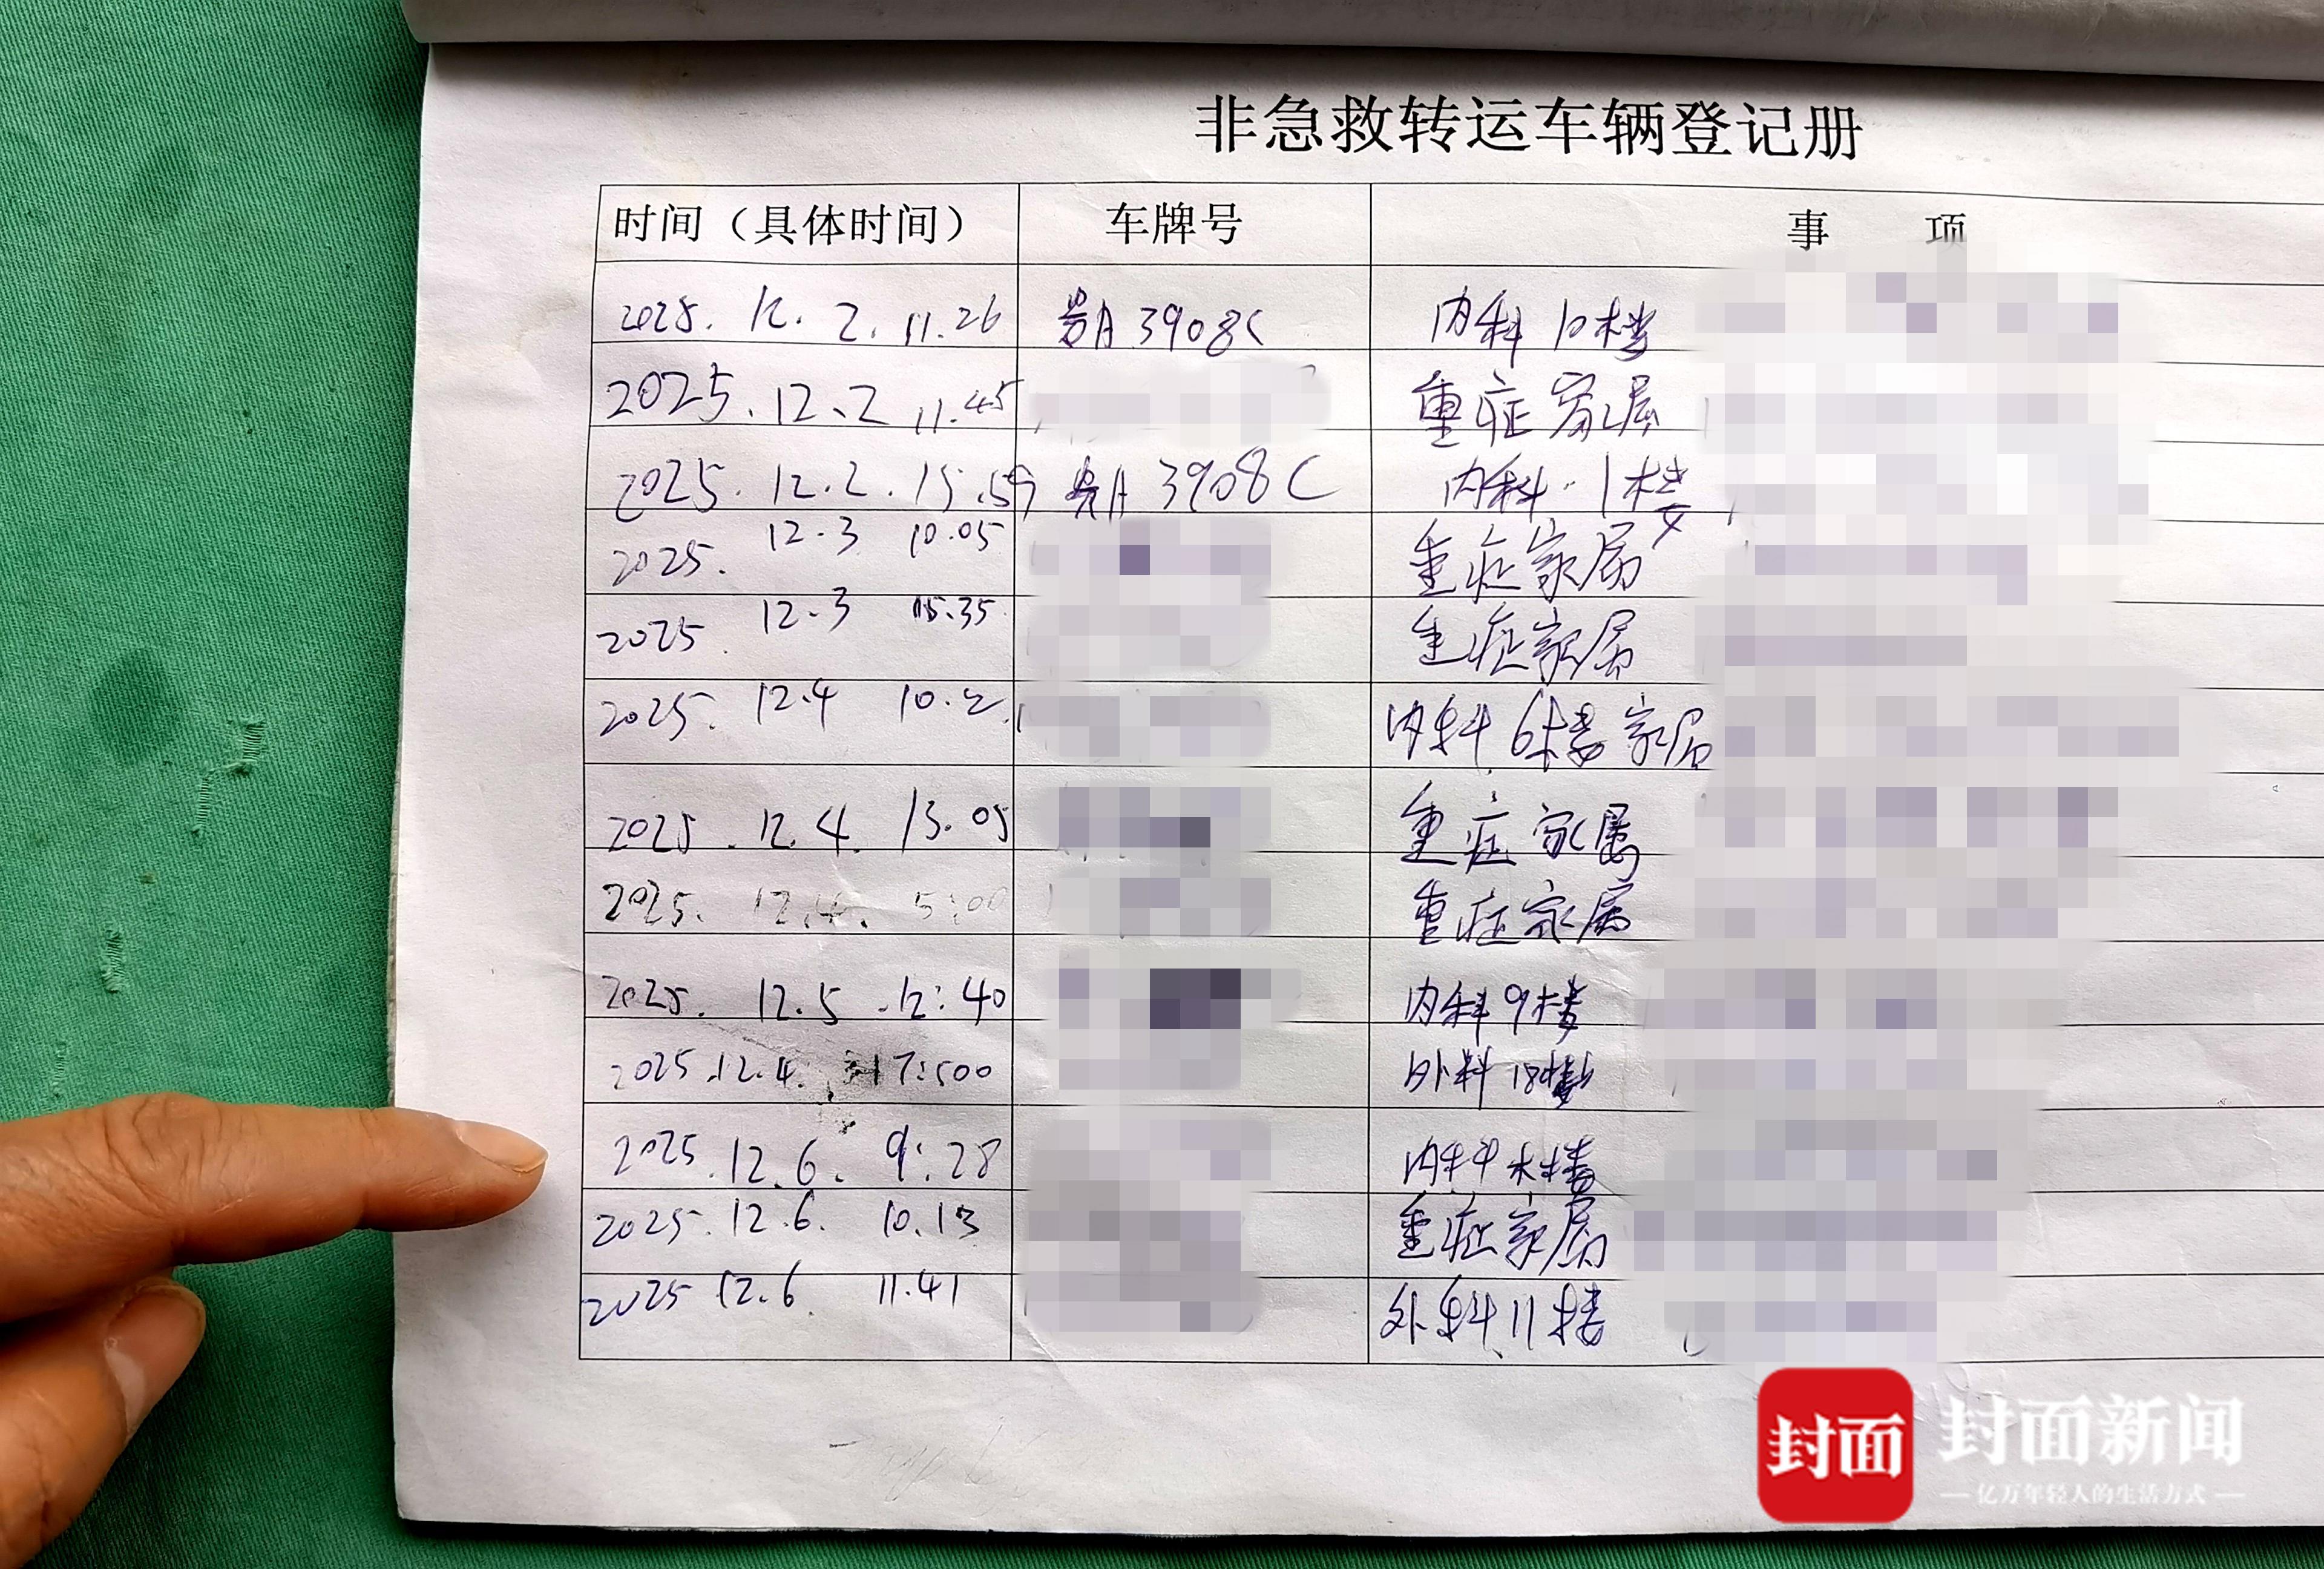 非急救转运车辆登记册
时间（具体时间） 车牌号 事 项
2025. 12. 2. 11.26 贵A 3908C 内科 10楼
2025. 12. 2 11.45 重症家属
2025. 12.2. 15.59 贵A 3908C 内科 1楼
2025. 12.3 10.05 重症家属
2025. 12.3 15.35 重症家属
2025. 12.4 10. 内科 6楼 家属
2025. 12. 4. 13.05 重症家属
2025. 12.4. 5:00 重症家属
2025. 12.5 12:40 内科 9楼
2025.12.4. 17:500 外科 18楼
2025. 12.6. 9:28 内科 楼
2025. 12.6. 10.13 重症家属
2025 12.6. 11.41 外科 11楼
封面 封面新闻
亿万年轻人的生活方式